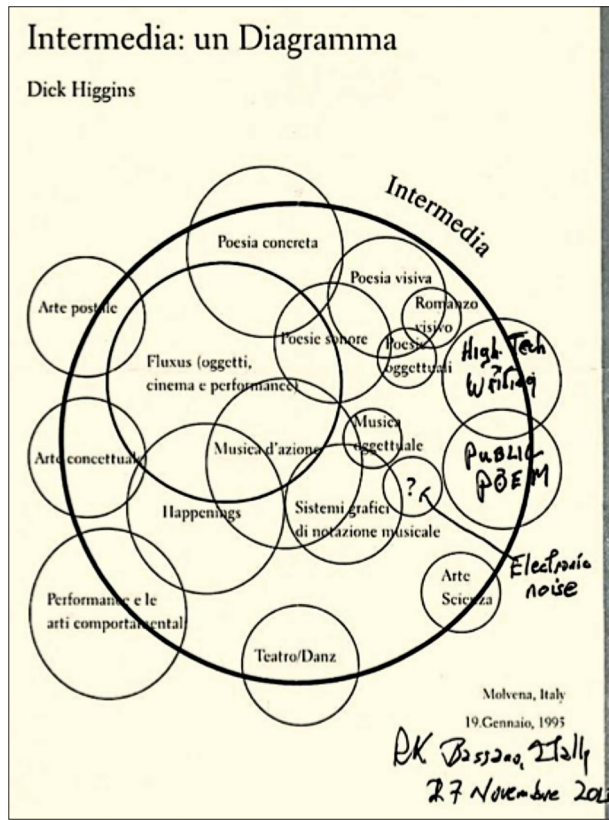 Intermedia: un Diagramma
Dick Higgins
Intermedia
Poesia concreta
Poesia visiva
Arte postale
Romanzo
visivo
Poesie sonore
Poesie
oggettuali
High-Tech
Writing
Fluxus (oggetti,
cinema e performance)
Musica
oggettuale
Musica d'azione
Arte concettuale
PUBLIC
POEM
?
Happenings
Sistemi grafici
di notazione musicale
Electronic
noise
Arte
Scienza
Performance e le
arti comportamentali
Teatro/Danz
Molvena, Italy
19.Gennaio, 1995
RK Bassano, Itally
27 Novembre